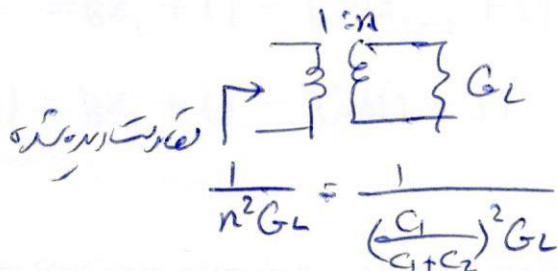 1:n
G_L
مقاومت دیده شده
1/(n²G_L) = 1/((C₁/(C₁+C₂))²G_L)